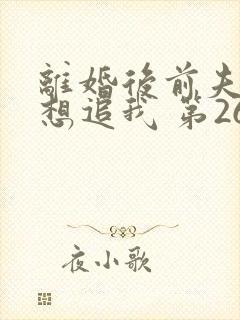 離婚後前夫
想追我 第26
夜小歌